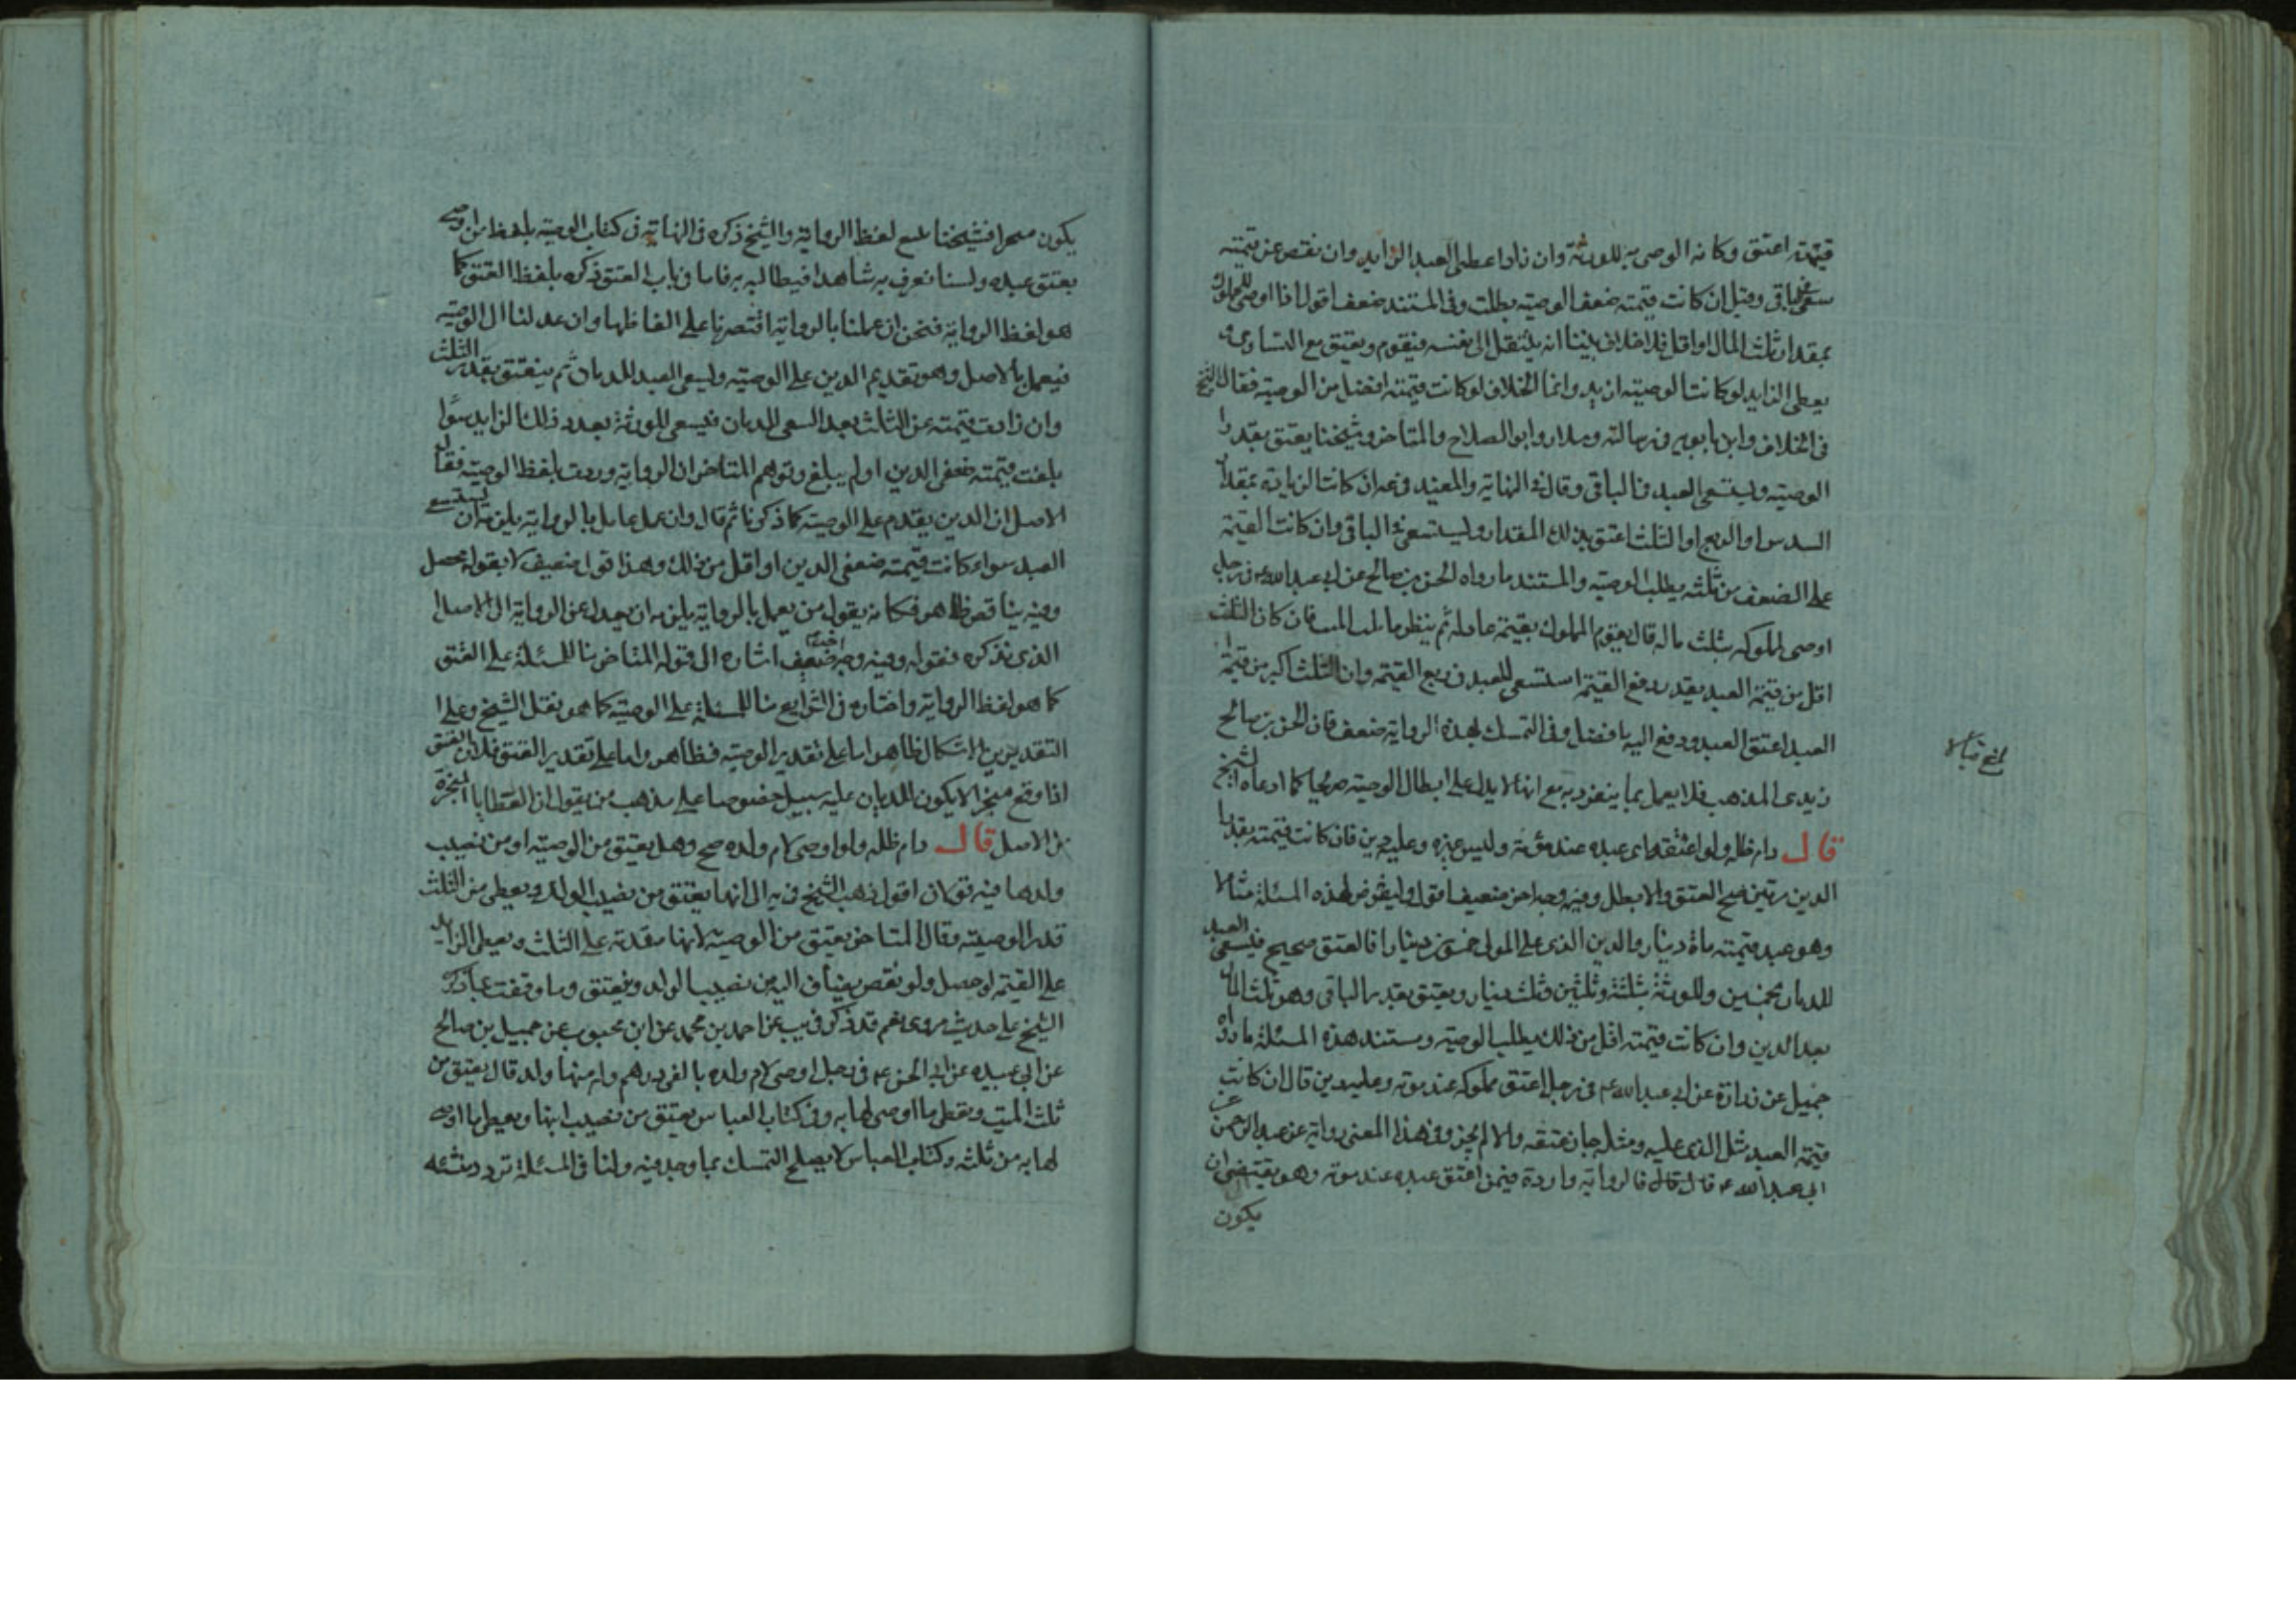 قيمته اعتق وكان الموصى به للورثة وان زاد اعطى العبد الزايد وان نقص عن قيمته
سعى في الباقى وقيل ان كانت قيمته ضعف الوصية بطلت وفى المستند ضعف اقول اذا اوصى للمملوك
بمقدار ثلث المال او اقل فلا خلاف بيننا انه ينتقل الى نفسه فيقوم ويعتق مع التساوى و
يعطى الزايد لو كانت الوصية ازيد وانما الخلاف لو كانت قيمته افضل من الوصية فقال الشيخ
فى الخلاف وابن بابويه فى رسالته وسلار وابو الصلاح والمتاخر وشيخنا يعتق بقدر
الوصية ويستسعى العبد فى الباقى وقال فى النهاية والمفيد فى عه ان كانت الزيادة بمقدار
السدس او الربع او الثلث اعتق بذلك المقدار وليستسعى فى الباقى وان كانت القيمة
على الضعف من ثلثه بطلت الوصية والمستند ما رواه الحسن بن صالح عن ابى عبد الله ع فى رجل
اوصى لمملوكه بثلث ماله قال يقوم المملوك بقيمة عادلة ثم ينظر ما ثلث الميت فان كان الثلث
اقل من قيمة العبد بقدر ربع القيمة استسعى العبد فى ربع القيمة وان الثلث اكبر من قيمة
العبد اعتق العبد ودفع اليه ما فضل وفى التمسك بهذه الرواية ضعف فان الحسن بن صالح
زيدى المذهب فلا يعمل بما ينفرد به مع انها لا يدل على ابطال الوصية صريحا كما ادعاه الشيخ
قال دام ظله ولو اعتقه اى عبده عند موته وليس غيره وعليه دين فان كانت قيمته بقدر
الدين مرتين صح العتق والا بطل وفيه وجه اخر ضعيف اقول وليفرض لهذه المسئلة مثالا
وهو عبد قيمته ماة دينار والدين الذى على المولى خمسون دينارا فالعتق صحيح فيسعى العبد
للديان بخمسين وللورثة بثلثة وثلثين وثلث دينار ويعتق بقدر الباقى وهو ثلث المال
بعد الدين وان كانت قيمته اقل من ذلك يطلب الوصية ومستند هذه المسئلة ما رواه
جميل عن زرارة عن ابى عبد الله ع فى رجل اعتق مملوكه عند موته وعليه دين قال ان كانت
قيمة العبد مثل الذى عليه ومثله جاز عتقه والا لم يجز وفى هذا المعنى رواية عن عبد الرحمن عن
ابى عبد الله ع قال قال فالرواية واردة فيمن اعتق عبده عند موته وهو يقتضى ان
يكون
يكون منجزا فشيخنا لفظ الرواية والشيخ ذكره فى النهاية فى كتاب الوصية بلفظ من اوصى
بعتق عبده ولسنا نعرف به شاهدا فيطالب به فاما فى باب العتق ذكره بلفظ العتق كما
هو لفظ الرواية فنحن ان عملنا بالرواية اقتصرنا على الفاظها وان عدلنا الى الوصية
فيعمل بالاصل وهو تقديم الدين على الوصية وليسعى العبد للديان ثم ينعتق بقدر الثلث
وان زادت قيمته عن الثلث بعد السعى للديان فيسعى للورثة بعدد ذلك الزايد سواء
بلغت قيمته ضعفى الدين او لم يبلغ وتوهم المتاخر ان الرواية وردت بلفظ الوصية فقال
الاصل ان الدين يقدم على الوصية كما ذكرنا ثم قال وان عمل عامل بالرواية يلزمه ان يستسعى
العبد سواء كانت قيمته ضعفى الدين او اقل من ذلك وهذا قول ضعيف لا بقوله محصل
وفيه يناقض ظاهر فكانه يقول من يعمل بالرواية يلزمه ان يعدل عن الرواية الى الاصل
الذى نذكره فقوله وفيه وجه اخر ضعيف اشاره الى قول المتاخر بنا للمسئلة على العتق
كما هو لفظ الرواية واختاره فى الشرايع بنا للمسئلة على الوصية كما هو نقل الشيخ وعلى
التقديرين الاشكال ظاهر اما على تقدير الوصية فظاهر واما على تقدير العتق فلان العتق
اذا وقع منجزا لا يكون للديان عليه سبيل خصوصا على مذهب من يقول ان العطايا المنجزة
من الاصل قال دام ظله ولو اوصى لام ولده صح وهل يعتق من الوصية او من نصيب
ولدها فيه قولان اقول ذهب الشيخ فى يه الى انها يعتق من نصيب الولد ويعطى من الثلث
قدر الوصية وقال المتاخر يعتق من الوصية لانها مقدمة على الثلث ويعطى الزايد
على القيمة لو حصل ولو نقص يضاف اليه من نصيب الولد وينعتق وما وقفت عبارة
الشيخ على حديث مروى نعم قد ذكر فى يب عن احمد بن محمد عن ابن محبوب عن جميل بن صالح
عن ابى عبيده عن ابى الحسن ع فى رجل اوصى لام ولده بالفى درهم وله منها ولد قال يعتق من
ثلث الميت ويعطى ما اوصى لها به وفى كتاب العباس يعتق من نصيب ابنها ويعطى ما اوصى
لها به من ثلثه وكتاب العباس لا يصلح التمسك بما وجد فيه ولنا فى المسئلة تردد